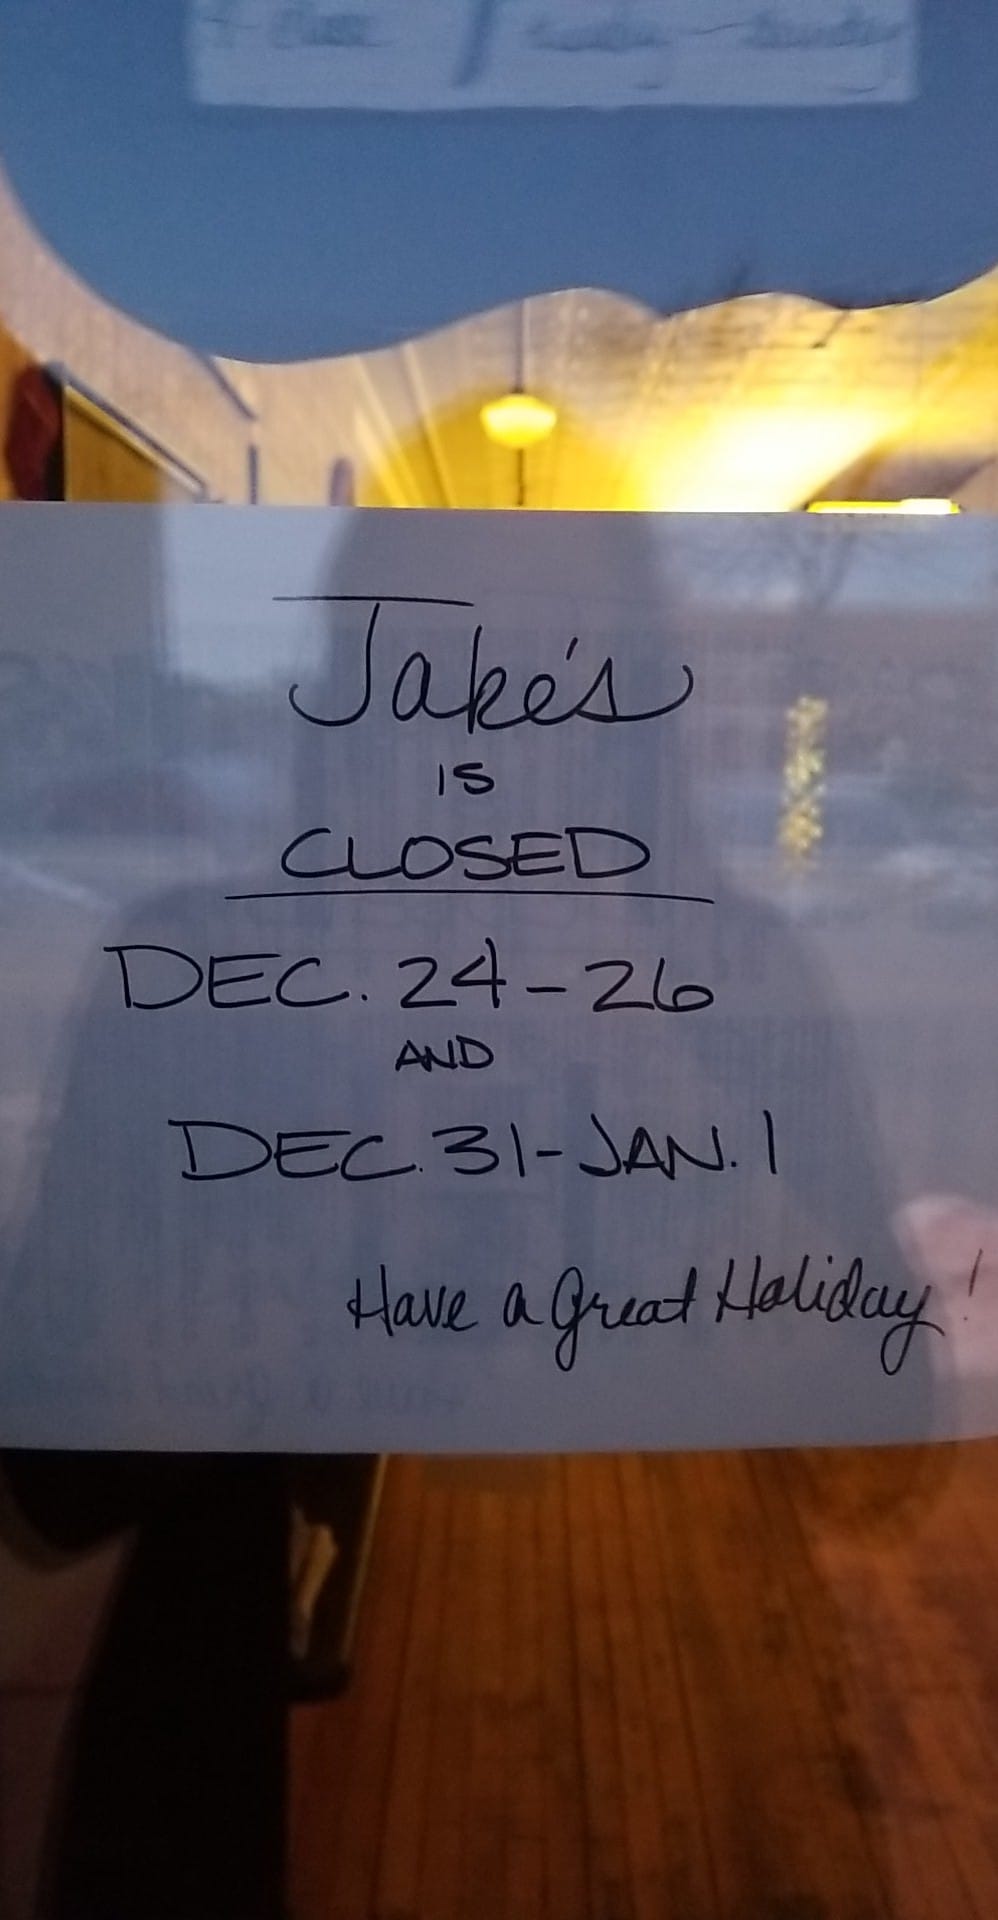 Jake's
IS
CLOSED
DEC. 24-26
AND
DEC. 31-JAN. 1
Have a Great Holiday!